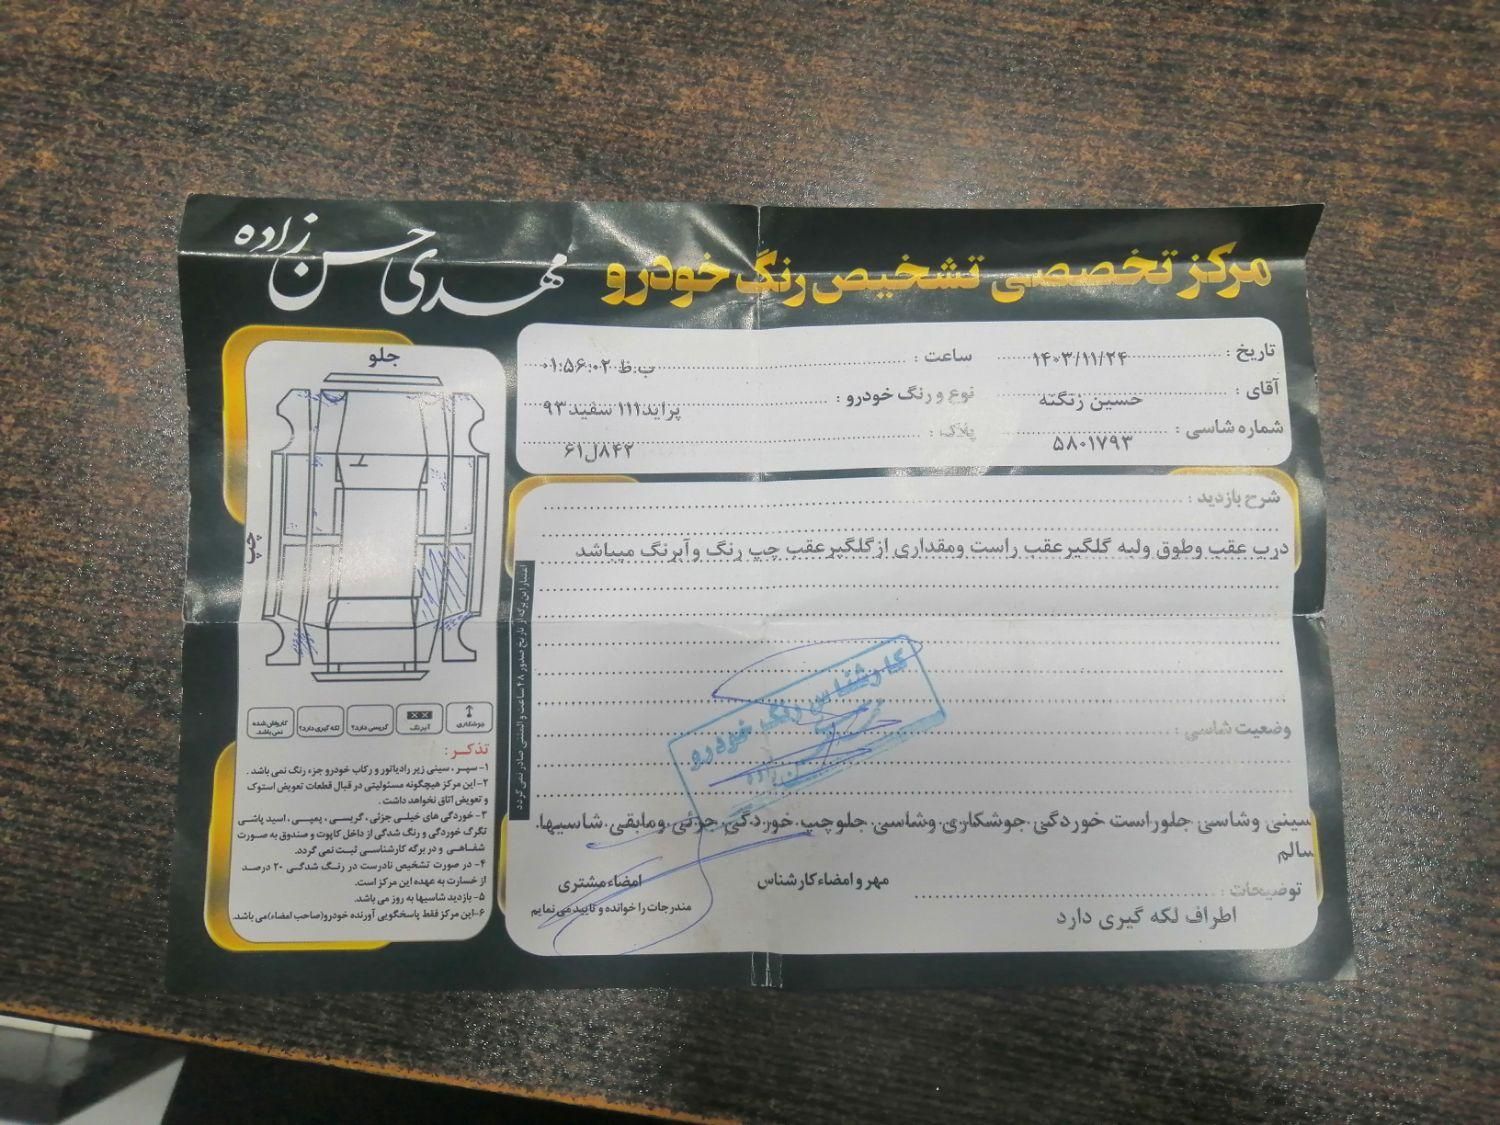 مرکز تخصصی تشخیص رنگ خودرو
مهدی حسن زاده
تاریخ : ۱۴۰۳/۱۱/۲۴
ساعت : ۰۱:۵۶:۰۲ ب.ظ
آقای : حسین زنگنه
نوع و رنگ خودرو : پراید۱۱۱ سفید۹۳
شماره شاسی : ۵۸۰۱۷۹۳
پلاک : ۸۴۲ل۶۱
شرح بازدید :
درب عقب وطوق ولبه گلگیرعقب راست ومقداری ازگلگیرعقب چپ رنگ وآبرنگ میباشد
وضعیت شاسی :
سینی وشاسی جلوراست خوردگی جوشکاری وشاسی جلوچپ خوردگی جزئی ومابقی شاسیها
سالم
توضیحات :
اطراف لکه گیری دارد
مهر و امضاء کارشناس
امضاء مشتری
مندرجات را خوانده و تایید می نمایم
کارشناس رنگ خودرو
اعتبار این برگه از تاریخ صدور ۴۸ ساعت و المثنی صادر نمی گردد
جلو
چپ
جوشکاری
آبرنگ
گریسی دارد؟
لکه گیری دارد؟
کارواش شده نمی باشد
تذکر :
۱- سپر ، سینی زیر رادیاتور و رکاب خودرو جزء رنگ نمی باشد .
۲- این مرکز هیچگونه مسئولیتی در قبال قطعات تعویض استوک
و تعویض اتاق نخواهد داشت .
۳- خوردگی های خیلی جزئی، گریسی ، پمپی ، اسید پاشی
تگرگ خوردگی و رنگ شدگی از داخل کاپوت و صندوق به صورت
شفاهی و در برگه کارشناسی ثبت نمی گردد.
۴- در صورت تشخیص نادرست در رنگ شدگی ۲۰ درصد
از خسارت به عهده این مرکز است.
۵- بازدید شاسیها به روز می باشد.
۶- این مرکز فقط پاسخگویی آورنده خودرو(صاحب امضاء)می باشد.